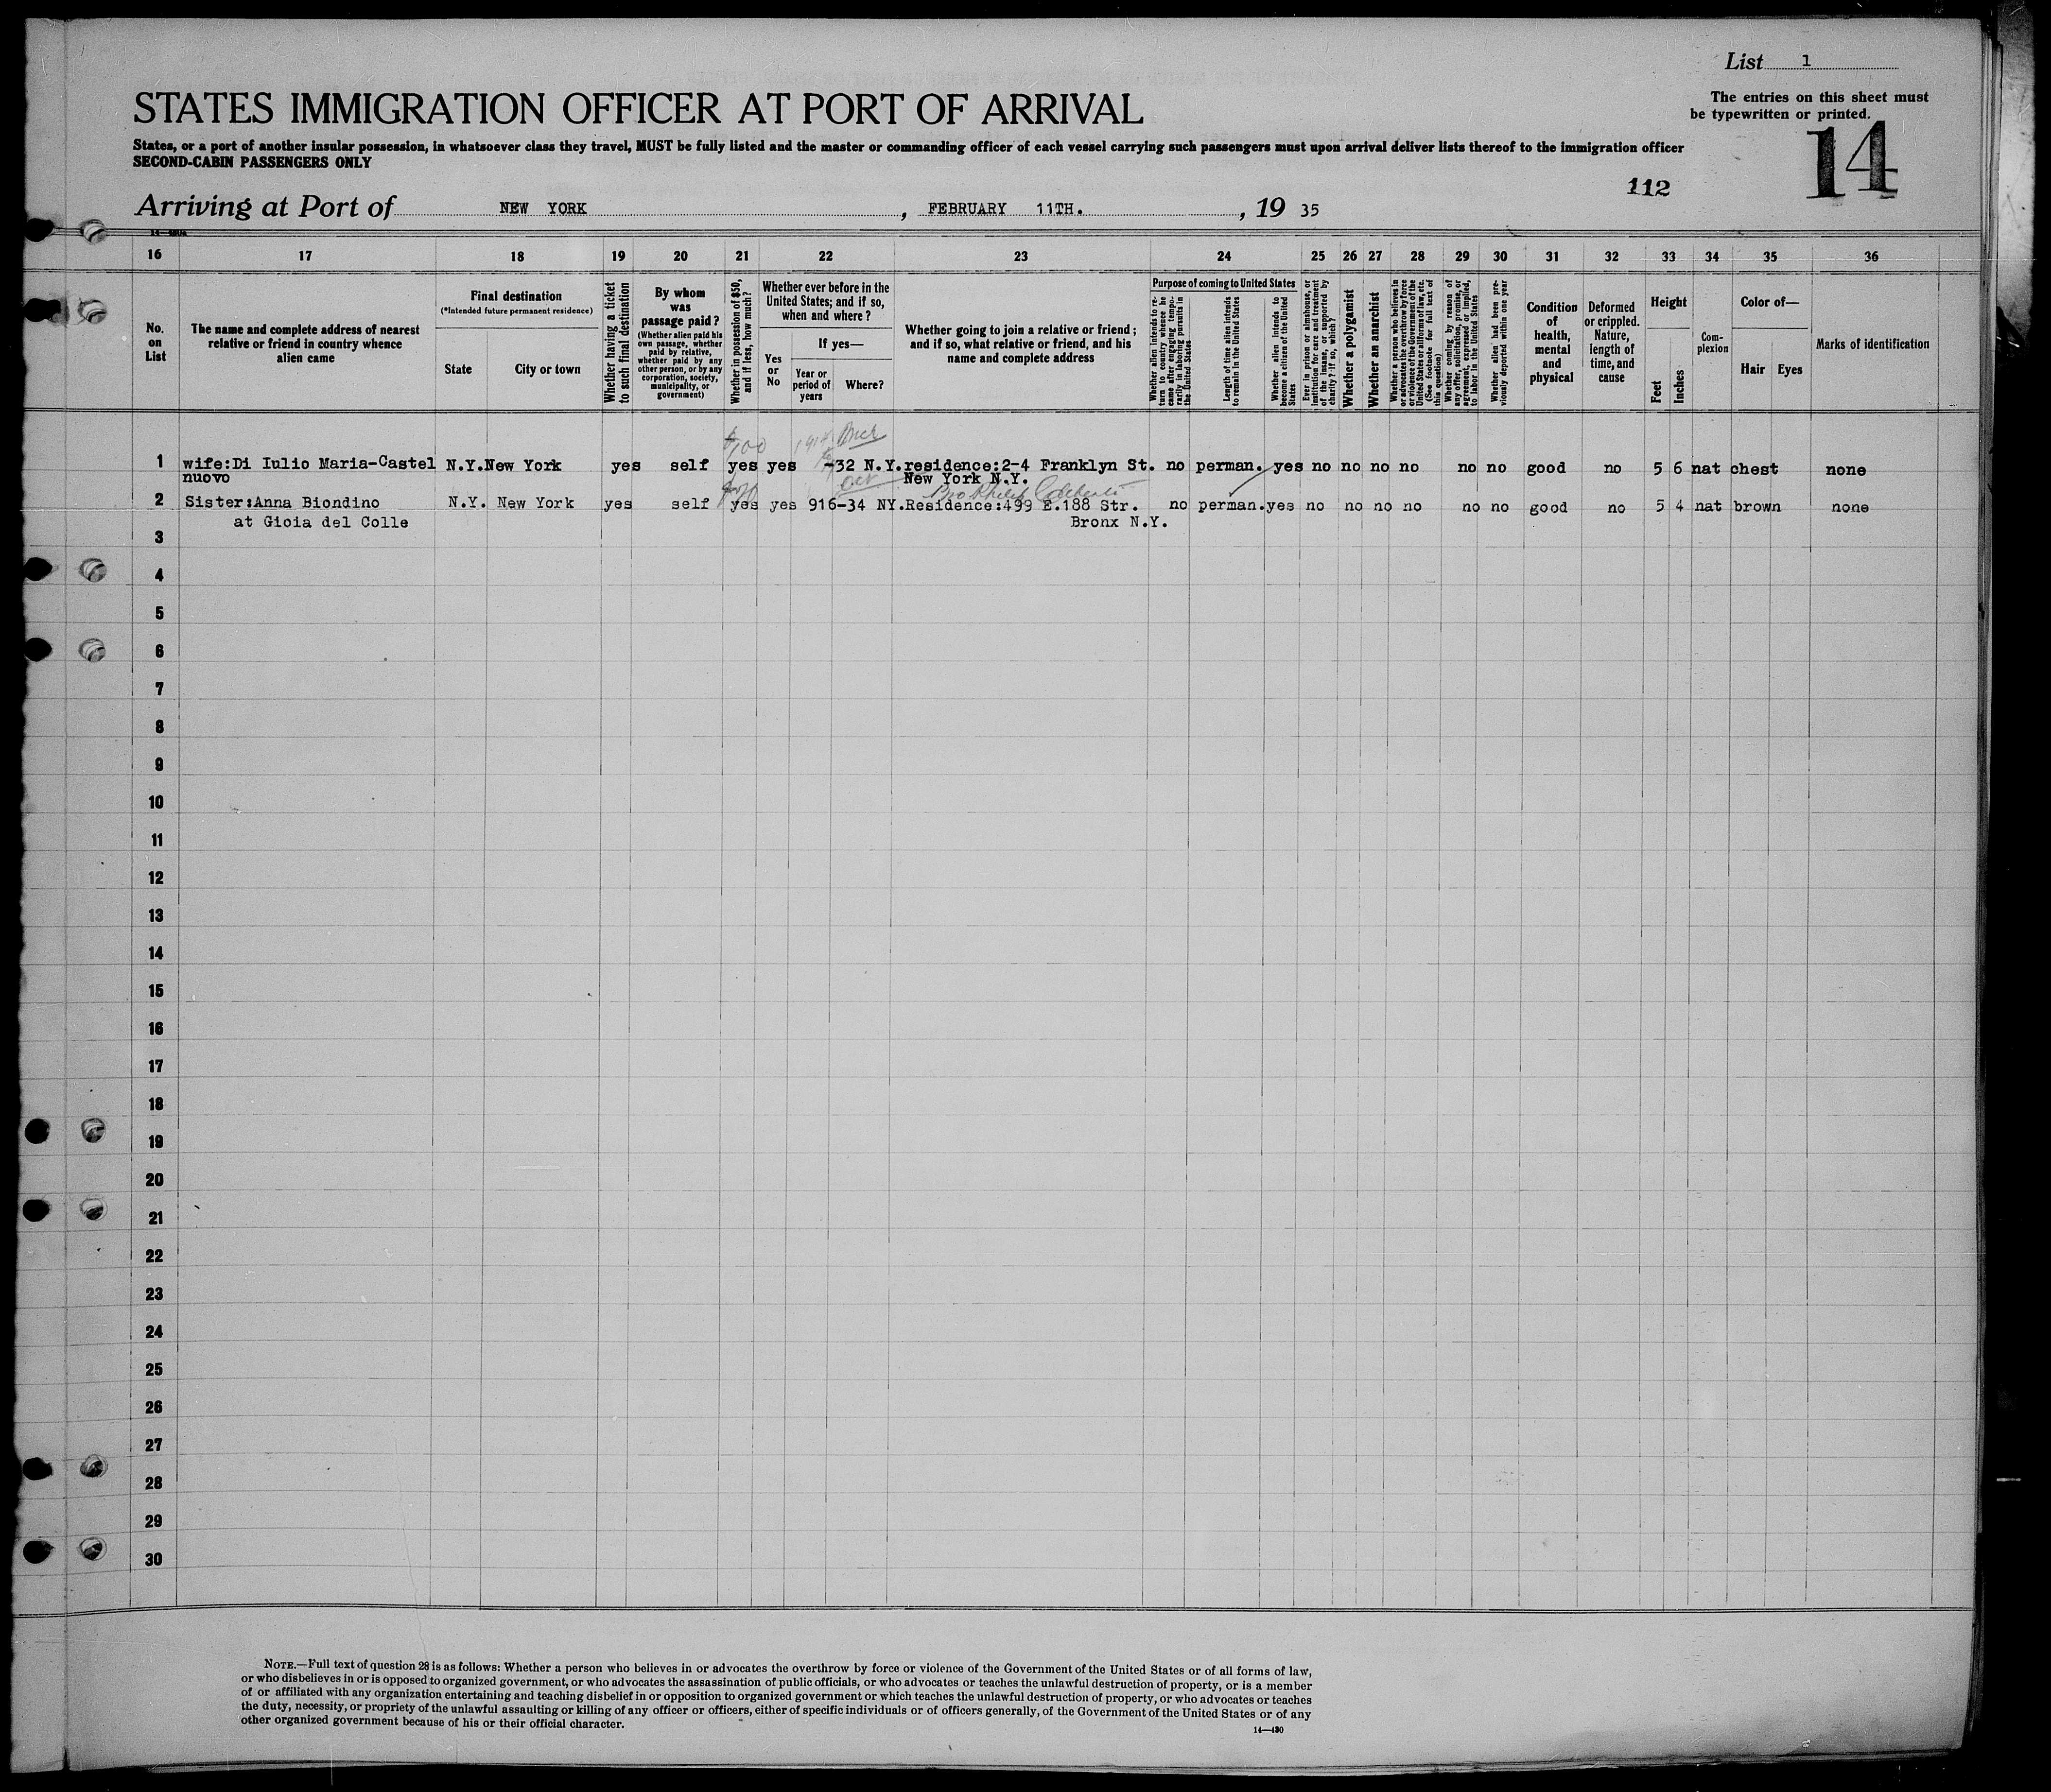 List 1
The entries on this sheet must
be typewritten or printed.
STATES IMMIGRATION OFFICER AT PORT OF ARRIVAL
States, or a port of another insular possession, in whatsoever class they travel, MUST be fully listed and the master or commanding officer of each vessel carrying such passengers must upon arrival deliver lists thereof to the immigration officer
SECOND-CABIN PASSENGERS ONLY
14
112
Arriving at Port of NEW YORK, FEBRUARY 11TH., 19 35
16 17 18 19 20 21 22 23 24 25 26 27 28 29 30 31 32 33 34 35 36
No. on List
The name and complete address of nearest relative or friend in country whence alien came
Final destination
(*Intended future permanent residence)
State
City or town
Whether having a ticket to such final destination
By whom was passage paid?
(Whether alien paid his own passage, whether paid by relative, whether paid by any other person, or by any corporation, society, municipality, or government)
Whether in possession of $50, and if less, how much?
Whether ever before in the United States; and if so, when and where?
Yes or No
If yes—
Year or period of years
Where?
Whether going to join a relative or friend; and if so, what relative or friend, and his name and complete address
Purpose of coming to United States
Whether alien intends to return to country whence he came after engaging temporarily in laboring pursuits in the United States
Length of time alien intends to remain in the United States
Whether alien intends to become a citizen of the United States
Ever in prison or almshouse, or institution for care and treatment of the insane, or supported by charity? If so, which?
Whether a polygamist
Whether an anarchist
Whether a person who believes in or advocates the overthrow by force or violence of the Government of the United States or all forms of law, etc. (See footnote for full text of this question)
Whether coming by reason of any offer, solicitation, promise, or agreement, expressed or implied, to labor in the United States
Whether alien had been previously deported within one year
Condition of health, mental and physical
Deformed or crippled. Nature, length of time, and cause
Height
Feet
Inches
Complexion
Color of—
Hair
Eyes
Marks of identification
$100
1 wife:Di Iulio Maria-Castel N.Y. New York yes self yes yes -32 N.Y. residence:2-4 Franklyn St. no perman. yes no no no no no no good no 5 6 nat chest none
nuovo New York N.Y.
2 Sister:Anna Biondino N.Y. New York yes self yes yes 916-34 NY. Residence:499 E.188 Str. no perman. yes no no no no no no good no 5 4 nat brown none
at Gioia del Colle Bronx N.Y.
3
4
5
6
7
8
9
10
11
12
13
14
15
16
17
18
19
20
21
22
23
24
25
26
27
28
29
30
NOTE.—Full text of question 28 is as follows: Whether a person who believes in or advocates the overthrow by force or violence of the Government of the United States or of all forms of law,
or who disbelieves in or is opposed to organized government, or who advocates the assassination of public officials, or who advocates or teaches the unlawful destruction of property, or is a member
of or affiliated with any organization entertaining and teaching disbelief in or opposition to organized government or which teaches the unlawful destruction of property, or who advocates or teaches
the duty, necessity, or propriety of the unlawful assaulting or killing of any officer or officers, either of specific individuals or of officers generally, of the Government of the United States or of any
other organized government because of his or their official character.
14—430